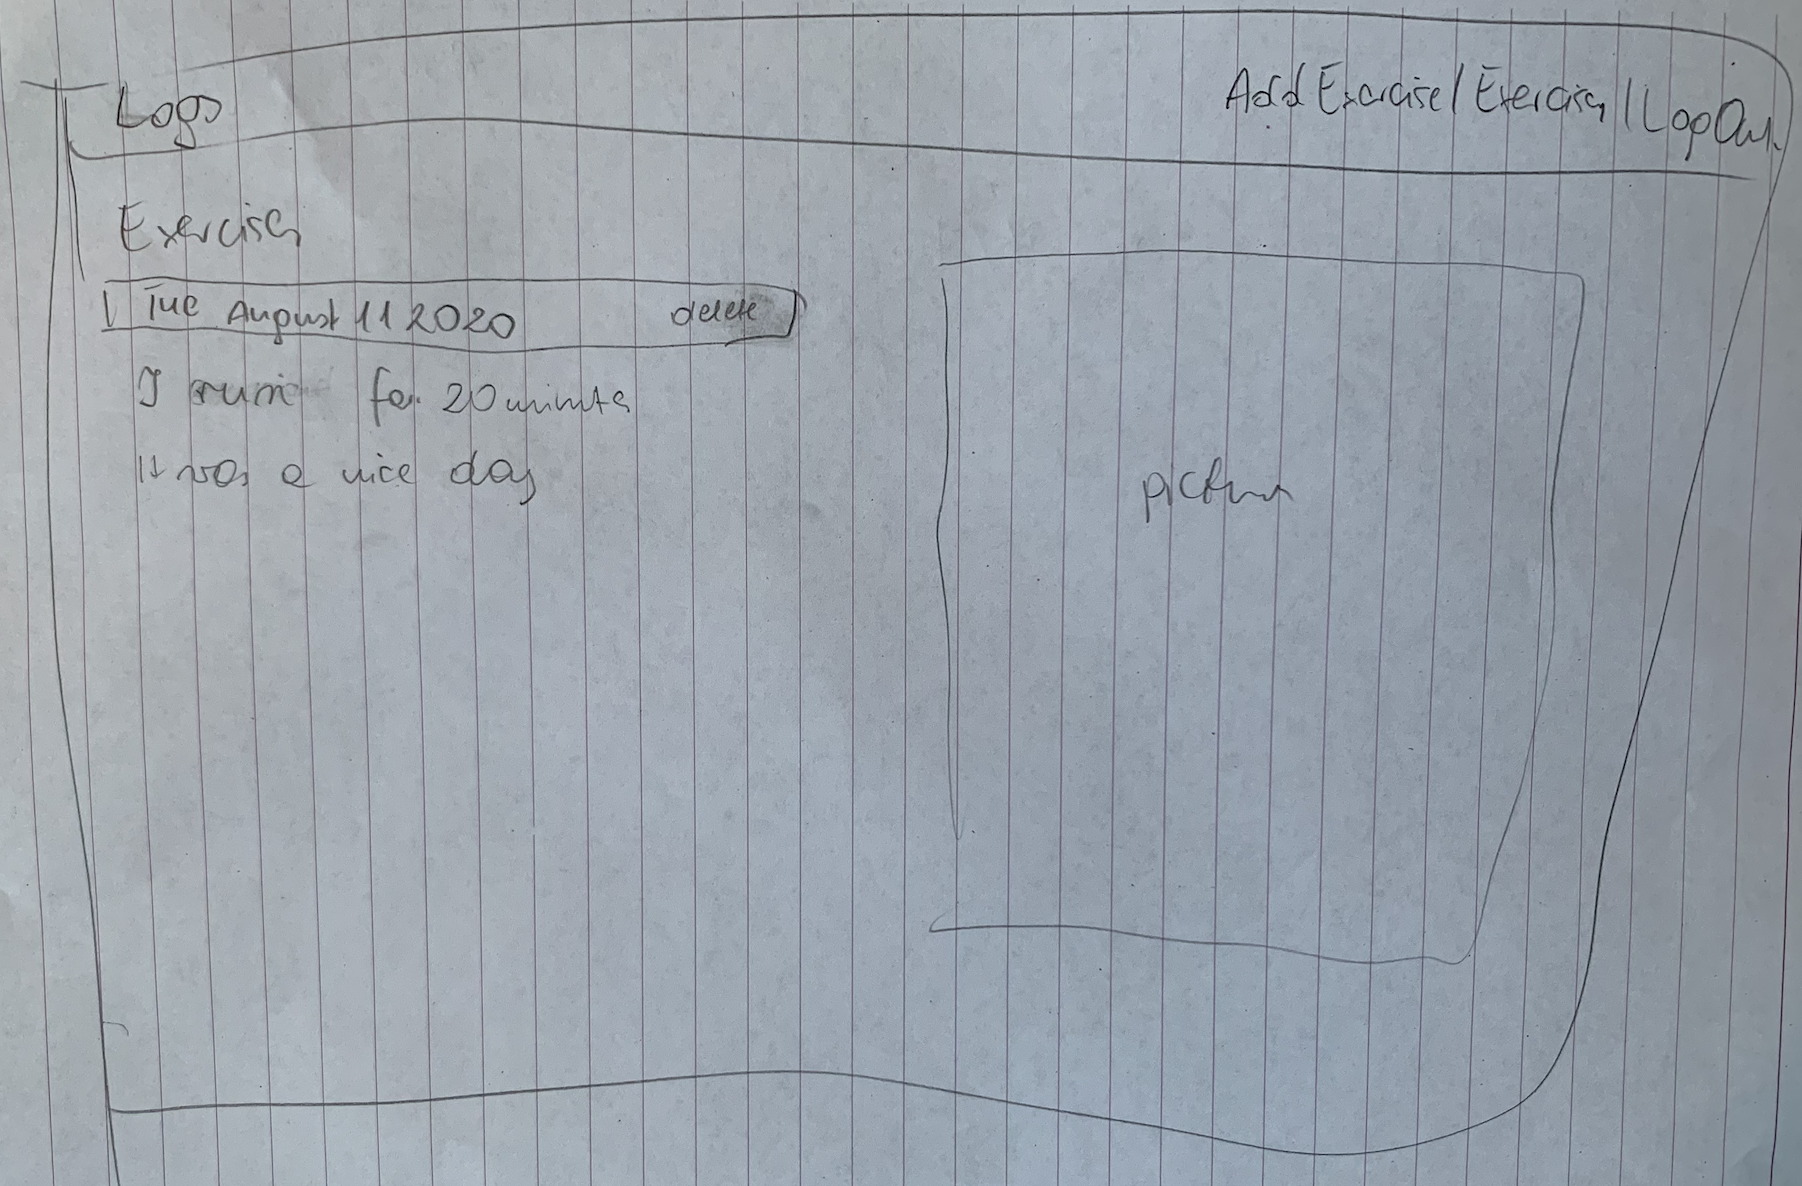 Logo
Add Exercise / Exercises / Log Out
Exercises
Tue August 11 2020 delete
I run for 20 minutes
It was a nice day
picture